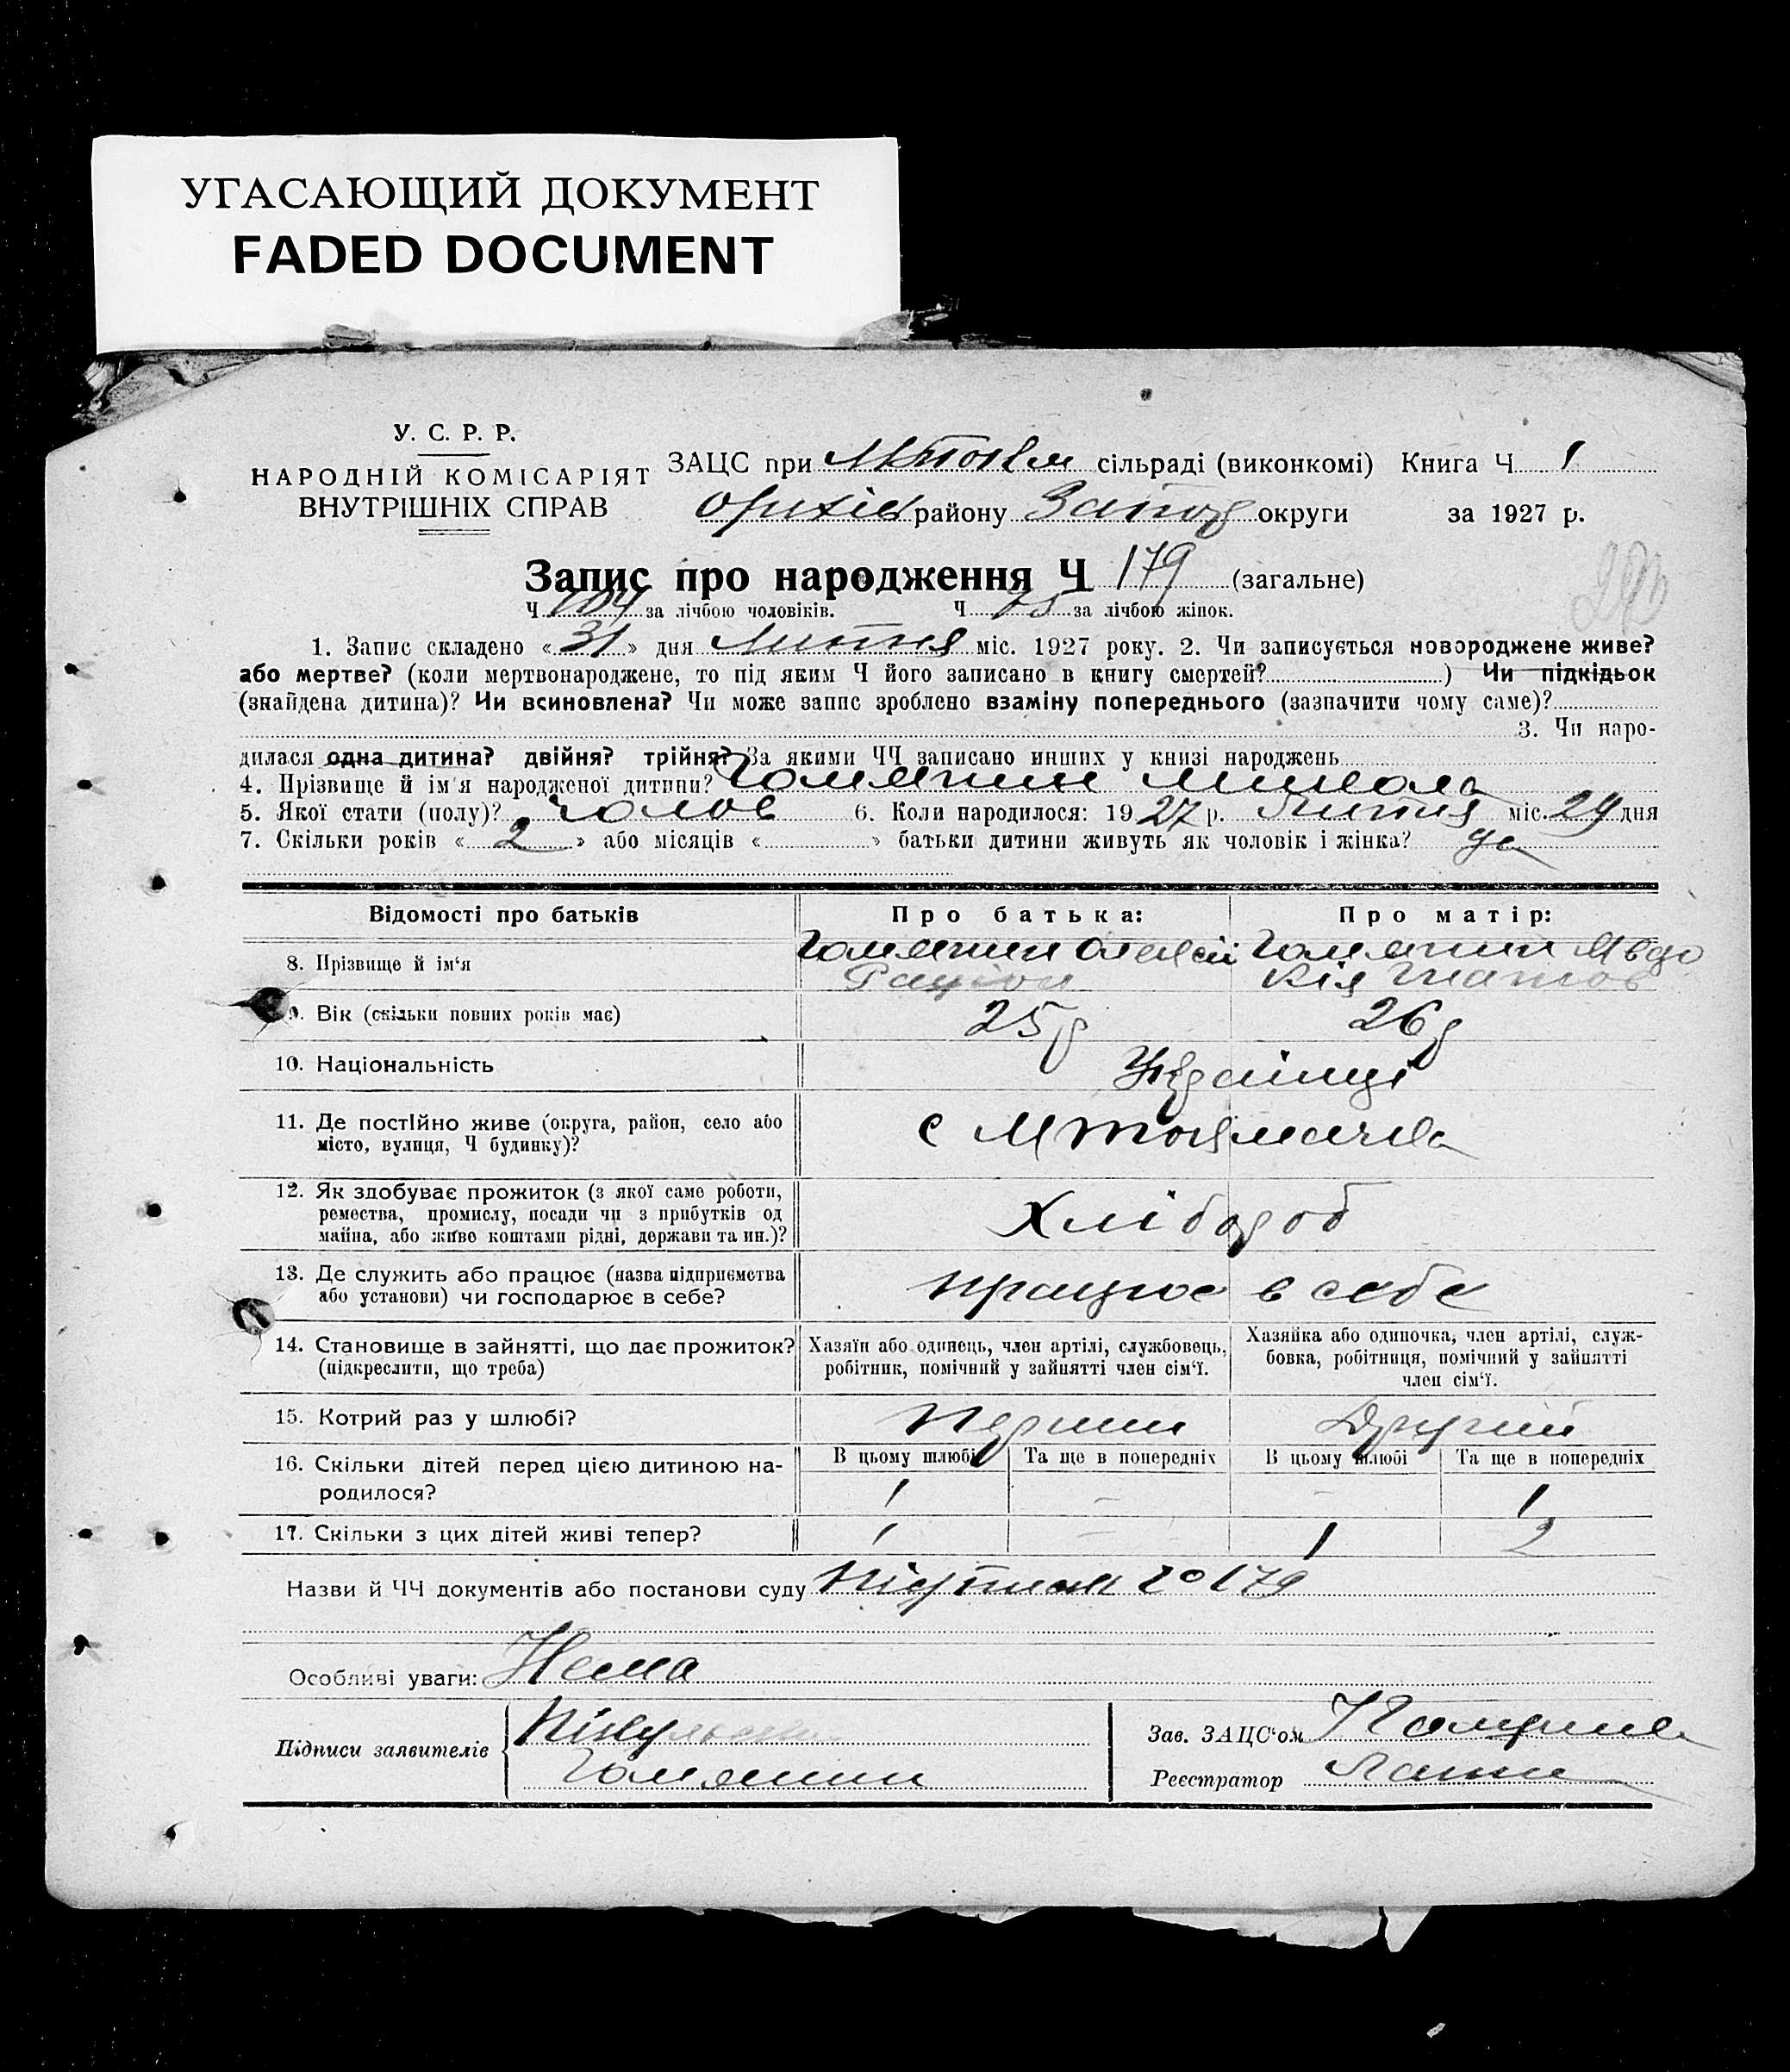 УГАСАЮЩИЙ ДОКУМЕНТ
FADED DOCUMENT
У. С. Р. Р.
НАРОДНІЙ КОМІСАРІЯТ
ВНУТРІШНІХ СПРАВ
ЗАЦС при сільраді (виконкомі) Книга Ч 1
Оріхів району Запор округи за 1927 р.
Запис про народження Ч 179 (загальне)
Ч 104 за лічбою чоловіків. Ч 75 за лічбою жінок.
1. Запис складено «31» дня Липня міс. 1927 року. 2. Чи записується новороджене живе?
або мертве? (коли мертвонароджене, то під яким Ч його записано в книгу смертей? ) Чи підкідьок
(знайдена дитина)? Чи всиновлена? Чи може запис зроблено взаміну попереднього (зазначити чому саме)?
3. Чи наро-
дилася одна дитина? двійня? трійня? За якими ЧЧ записано инших у книзі народжень
4. Прізвище й ім'я народженої дитини? Микола
5. Якої стати (полу)? чолов 6. Коли народилося: 1927 р. Липня міс. 29 дня
7. Скільки років «2» або місяців « » батьки дитини живуть як чоловік і жінка? да
Відомості про батьків
Про батька:
Про матір:
8. Прізвище й ім'я
Олексій
Явдо
кія
9. Вік (скільки повних років має)
25 р
26 р
10. Національність
Українці
11. Де постійно живе (округа, район, село або
місто, вулиця, Ч будинку)?
с М Токмачка
12. Як здобуває прожиток (з якої саме роботи,
ремества, промислу, посади чи з прибутків од
майна, або живе коштами рідні, держави та ин.)?
Хлібороб
13. Де служить або працює (назва підприємства
або установи) чи господарює в себе?
працює в себе
14. Становище в зайнятті, що дає прожиток?
(підкреслити, що треба)
Хазяїн або одинець, член артілі, службовець,
робітник, помічний у зайнятті член сім'ї.
Хазяйка або одиночка, член артілі, служ-
бовка, робітниця, помічний у зайнятті
член сім'ї.
15. Котрий раз у шлюбі?
Перший
Другий
16. Скільки дітей перед цією дитиною на-
родилося?
В цьому шлюбі Та ще в попередніх В цьому шлюбі Та ще в попередніх
1 – – 1
17. Скільки з цих дітей живі тепер?
1 – 1 2
Назви й ЧЧ документів або постанови суду 179
Особливі уваги: Нема
Підписи заявителів
Зав. ЗАЦС'ом
Реєстратор